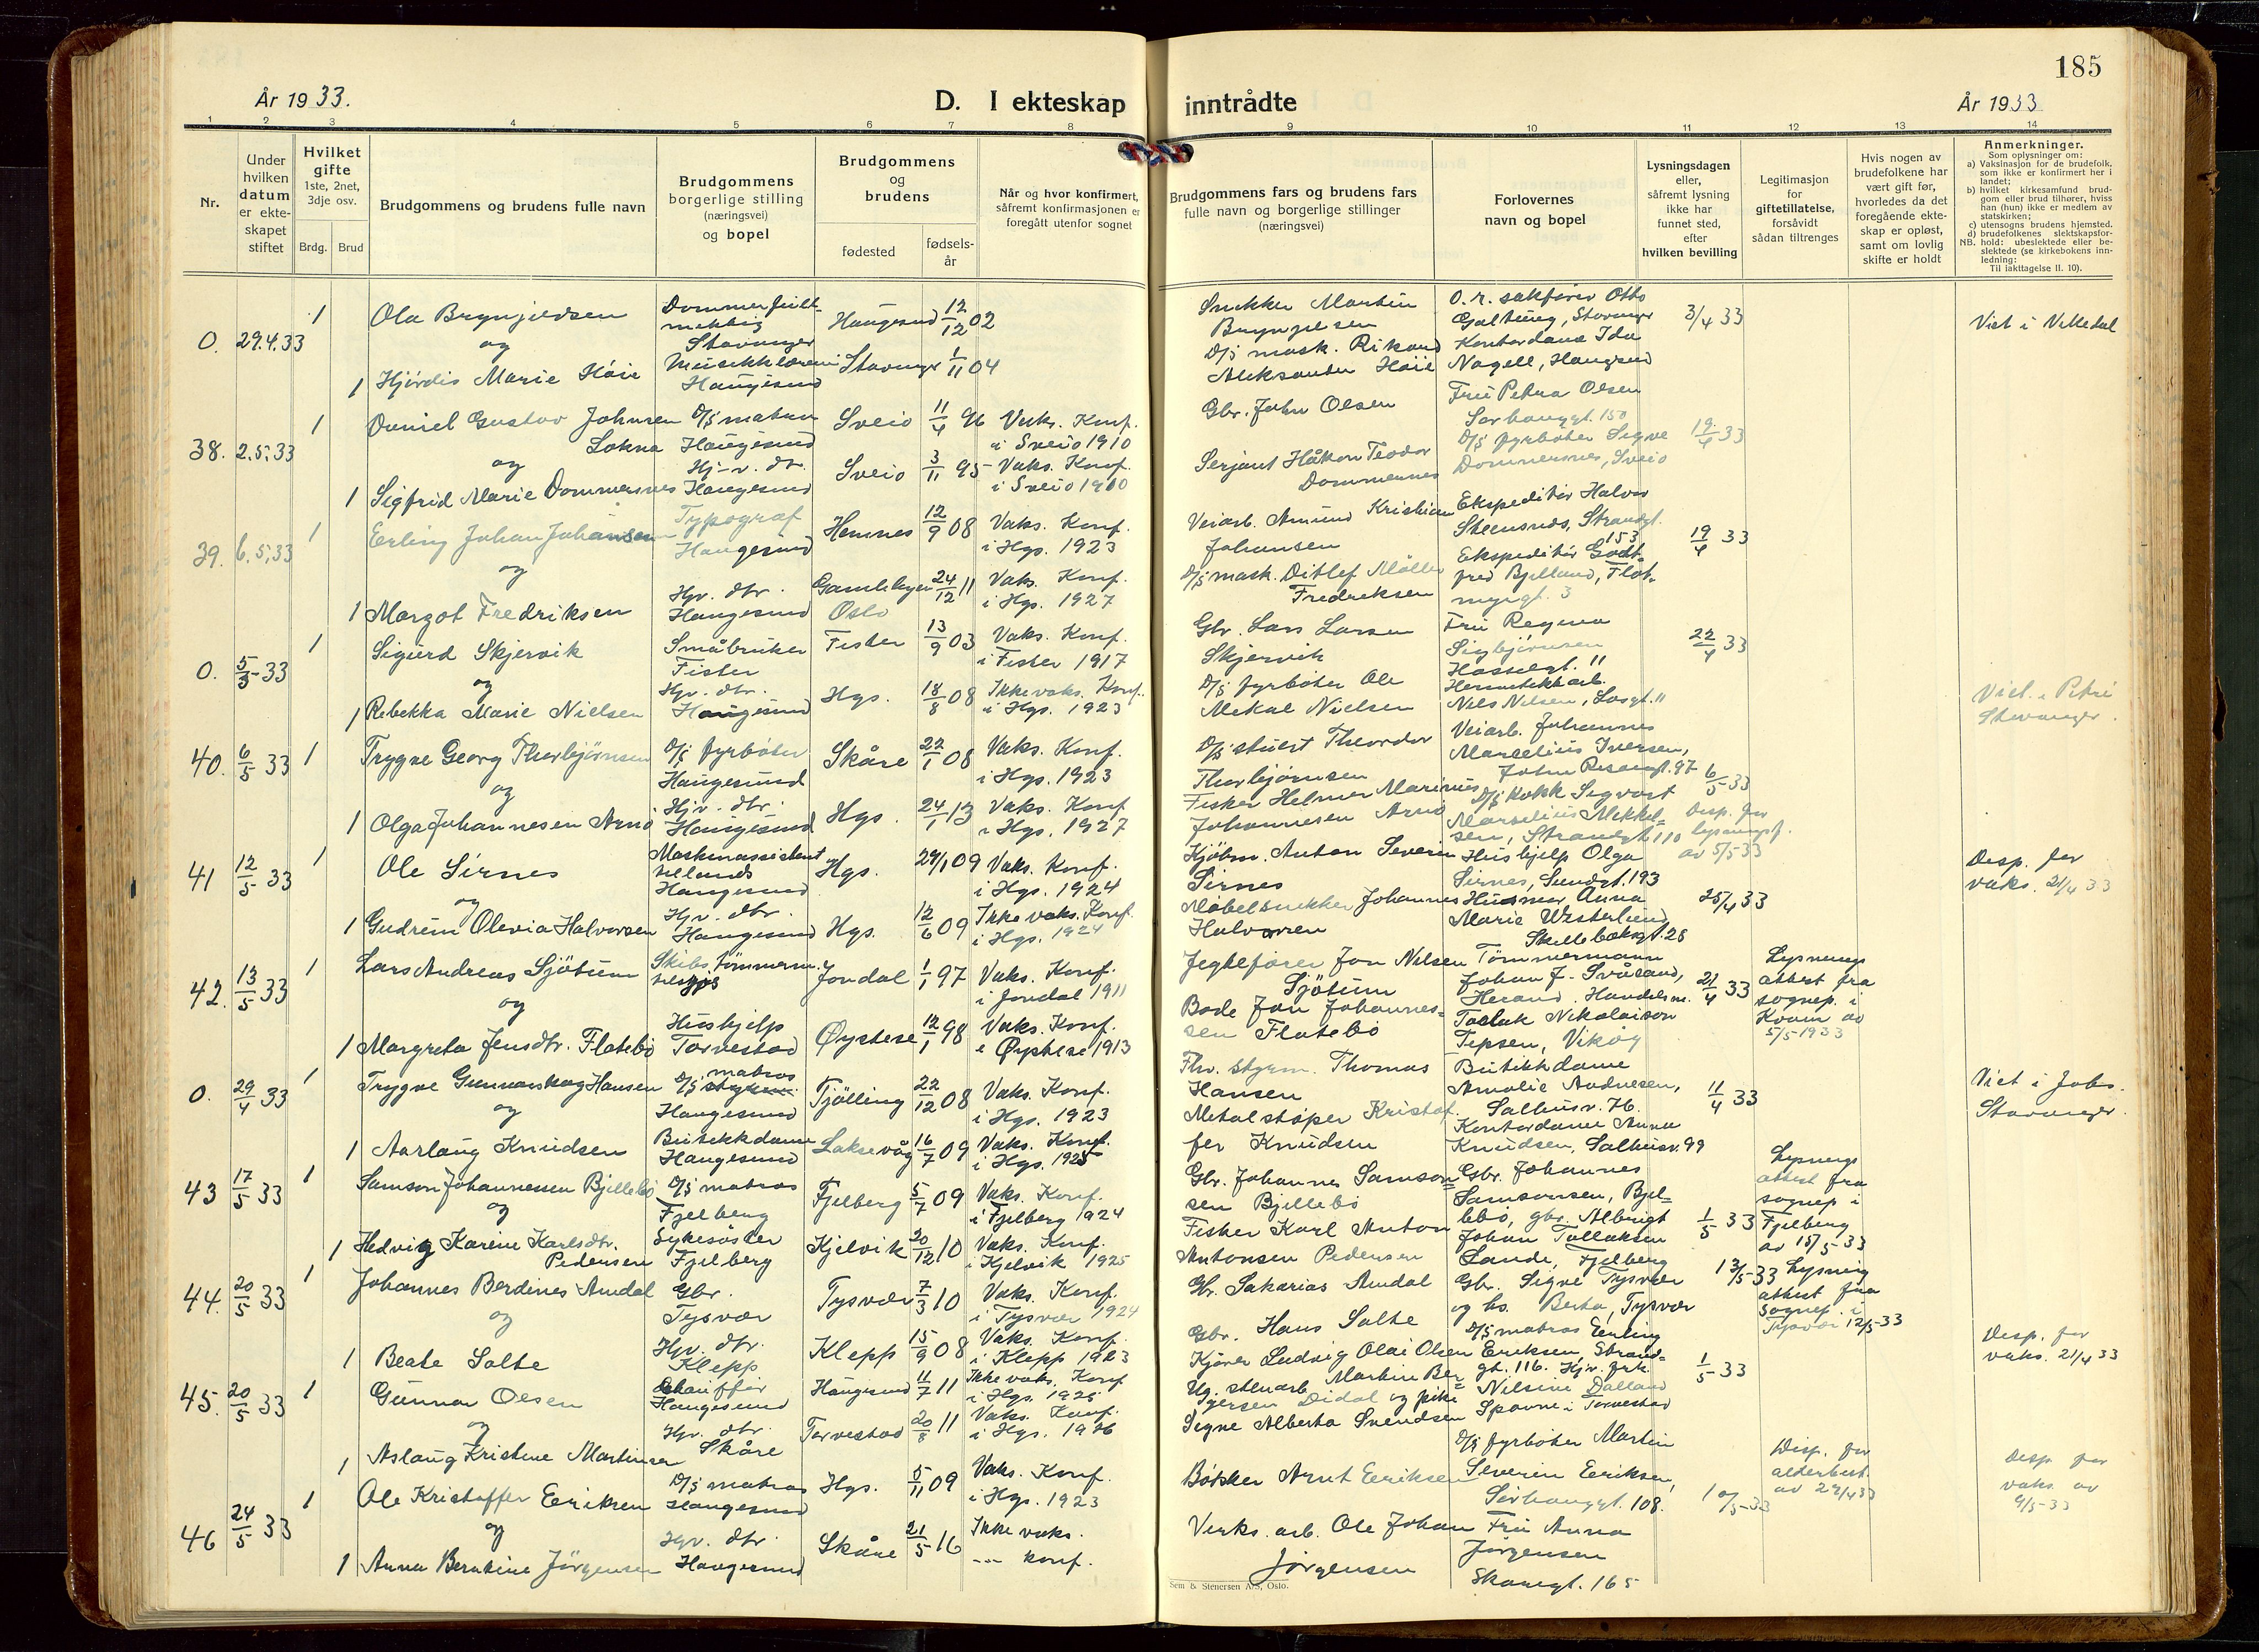 185
År 1933.
D. I ekteskap inntrådte
År 1933
1 2 3 4 5 6 7 8 9 10 11 12 13 14
Nr.
Under hvilken datum er ekteskapet stiftet
Hvilket gifte 1ste, 2net, 3dje osv.
Brdg. Brud
Brudgommens og brudens fulle navn
Brudgommens borgerlige stilling (næringsvei) og bopel
Brudgommens og brudens
fødested
fødselsår
Når og hvor konfirmert, såfremt konfirmasjonen er foregått utenfor sognet
Brudgommens fars og brudens fars fulle navn og borgerlige stillinger (næringsvei)
Forlovernes navn og bopel
Lysningsdagen eller, såfremt lysning ikke har funnet sted, efter hvilken bevilling
Legitimasjon for giftetillatelse, forsåvidt sådan tiltrenges
Hvis nogen av brudefolkene har vært gift før, hvorledes da det foregående ekteskap er opløst, samt om lovlig skifte er holdt
Anmerkninger.
Som oplysninger om:
a) Vaksinasjon for de brudefolk, som ikke er konfirmert her i landet;
b) hvilket kirkesamfund brudgom eller brud tilhører, hviss han (hun) ikke er medlem av statskirken;
c) utensogns brudens hjemsted.
d) brudefolkenes slektskapsforhold: ubeslektede eller beslektede (se kirkebokens innledning:
NB.
Til iakttagelse II. 10).
0. 29.4.33 1 Ola Brynjelsen
Stavanger Haugesund 12/12 02
og
1 Hjördis Marie Höie Musikklærerinne Haugesund Stavanger 1/11 04
Snekker Martin Brynjelsen
D/s mask. Rikard Aleksander Höie
O. r. sakfører Otto Galtung, Stavanger
Kontordame Ida Nagell, Haugesund
3/4 33
Viet i Vikedal
38. 2.5.33 1 Daniel Gustav Johnsen Lokna D/s matros Haugesund Sveio 11/4 96 Vaks. Konf. i Sveio 1910
og
1 Sigfrid Marie Dommersnes Hj.v. dtr. Haugesund Sveio 3/11 95 Vaks. Konf. i Sveio 1910
Gbr. John Olsen
Serjant Håkon Teodor Dommersnes
Fru Petra Olsen Sørhauggt. 150
D/s fyrböter Sigve Dommersnes, Sveio
19/4 33
39. 6.5.33 1 Erling Johan Johansen Typograf Haugesund Hemnes 12/9 08 Vaks. Konf. i Hgs. 1923
og
1 Margot Fredriksen Hjv. dtr. Haugesund Gamlebyen Oslo 24/12 11 Vaks. Konf. i Hgs. 1927
Veiarb. Amund Kristian Johansen
D/s mask. Ditlef Møller Fredriksen
Ekspeditör Halvor Steensnæs, Strandgt. 153
Ekspeditör Godtfred Bjelland, Flotmyrgt. 3
19/4 33
0. 5/5 33 1 Sigurd Skjervik Småbruker Fister Fister 13/9 03 Vaks. Konf. i Fister 1917
og
1 Rebekka Marie Nielsen Hjv. dtr. Haugesund Hgs. 18/8 08 Ikke vaks. Konf. i Hgs. 1923
Gbr. Lars Larsen Skjervik
D/s fyrböter Ole Mekal Nielsen
Fru Regina Sigbjörnsen Hasselgt. 11
Hermetikkarb. Nils Nilsen, Lusgt. 11
22/4 33
Viet i Petri Stavanger.
40. 6/5 33 1 Trygve Georg Thorbjörnsen D/s fyrböter Haugesund Skåre 22/1 08 Vaks. Konf. i Hgs. 1923
og
1 Olga Johannesen Arnö Hjv. dtr. Haugesund Hgs. 24/1 13 Vaks. Konf i Hgs. 1927
D/s stuert Theordor Thorbjörnsen
Fisker Helmer Marinius Johannesen Arnö
Veiarb. Johannes Marselius Iversen,
D/s kokk Sigvart Marselius Mikkelsen, Strandgt. 110
6/5 33
Disp. for lysningsf. av 5/5 33
41 12/5 33 1 Ole Sirnes Maskinassistent Haugesund Hgs. 29/1 09 Vaks. Konf. i Hgs. 1924
og
1 Gudrun Olevia Halvorsen Hjv. dtr. Haugesund Hgs. 12/6 09 Ikke vaks. Konf. i Hgs. 1924
Kjöbm. Anton Severin Sirnes
Møbelsnekker Johannes Halvorsen
Hushjelp Olga Sirnes, Sundgt. 193
Husmor Anna Marie Westerlund, Skillebæksgt. 28
25/4 33
Disp. for vaks. 21/4 33
42. 13/5 33 1 Lars Andreas Sjötun Skibstömmerm. Jondal 1/1 97 Vaks. Konf. i Jondal 1911
og
1 Margreta Jensdtr. Flatebö Hushjelp Torvestad Øystese 12/1 98 Vaks. Konf. i Øystese 1913
Jegtefører Jon Nilsen Sjötun
Bøde Jon Johannessen Flatebö
Tömmermann Johan J. Svåsand, Herand. Handelsm. Taalak Nikolaison Tepsen, Vikøy
21/4 33
Lysnings attest fra sognep. i Kvam av 5/5 1933
0. 29/4 33 1 Trygve Gunnarskog Hansen D/s matros Haugesund Tjölling 22/12 08 Vaks. Konf. i Hgs. 1923
og
1 Aarlaug Knudsen Butikkdame Haugesund Laksevåg 16/7 09 Vaks. Konf. i Hgs. 1925
Fhv. styrm. Thomas Hansen
Metalstöper Kristoffer Knudsen
Butikkdame Amalie Andresen, Salhusv. 76.
Kontordame Anna Knudsen, Salhusv. 99
11/4 33
Viet i Johs. Stavanger.
43 17/5 33 1 Samson Johannessen Bjellebö D/s matros Fjelberg Fjelberg 5/7 09 Vaks. Konf. i Fjelberg 1924
og
1 Hedvig Karine Karlsdtr. Pedersen Sykesöster Fjelberg Kjelvik 20/12 10 Vaks. Konf. i Kjelvik 1925
Gbr. Johannes Samsonsen Bjellebö
Fisker Karl Anton Antonsen Pedersen
Gbr. Johannes Samsonsen, Bjellebö, gbr. Albrigt Johan Tollaksen Sande, Fjelberg
1/5 33
Lysnings attest fra sognep i Fjelberg av 15/5 33
44. 20/5 33 1 Johannes Berdines Amdal Gbr. Tysvær Tysvær 7/3 10 Vaks. Konf. i Tysvær 1924
og
1 Beate Salte Hjv. dtr. Klepp Klepp 15/9 08 Vaks. Konf. i Klepp 1923
Gbr. Sakarias Amdal
Gbr. Hans Salte
Gbr. Sigve Tysvær og hs. Berta, Tysvær
13/5 33
Lysning attest fra sognep. i Tysvær 12/5 33
45. 20/5 33 1 Gunnar Olsen Chauffør Haugesund Haugesund 11/7 11 Ikke vaks. Konf i Hgs. 1925
og
1 Aslaug Kristine Martinsen Hjv. dtr. Skåre Torvestad 20/8 11 Vaks. Konf. i Hgs. 1926
Kjörer Ludvig Olai Olsen
Ug. stenarb. Martin Didal og pike Signe Alberta Svendsen
D/s matros Erling Eriksen, Strandgt. 116. Hjv. frk. Nilsine Dalland Spanne i Torvestad
1/5 33
Disp. for vaks. 21/4 33
46 24/5 33 1 Ole Kristoffer Eriksen D/s matros Haugesund Hgs. 5/11 09 Vaks. Konf. i Hgs. 1923
og
1 Anna Berntine Jörgensen Hjv. dtr. Haugesund Skåre 21/5 16 Ikke vaks. --- konf.
Bötker Arnt Eriksen
Verks. arb. Ole Johan Jörgensen
D/s fyrböter Martin Severin Eriksen, Sørhauggt. 108.
Fru Anna Jörgensen Skaregt. 165
10/5 33
Disp. for alderbest. av 29/4 33
Disp for vaks. av 9/5-33
Sem & Stenersen A/S, Oslo.